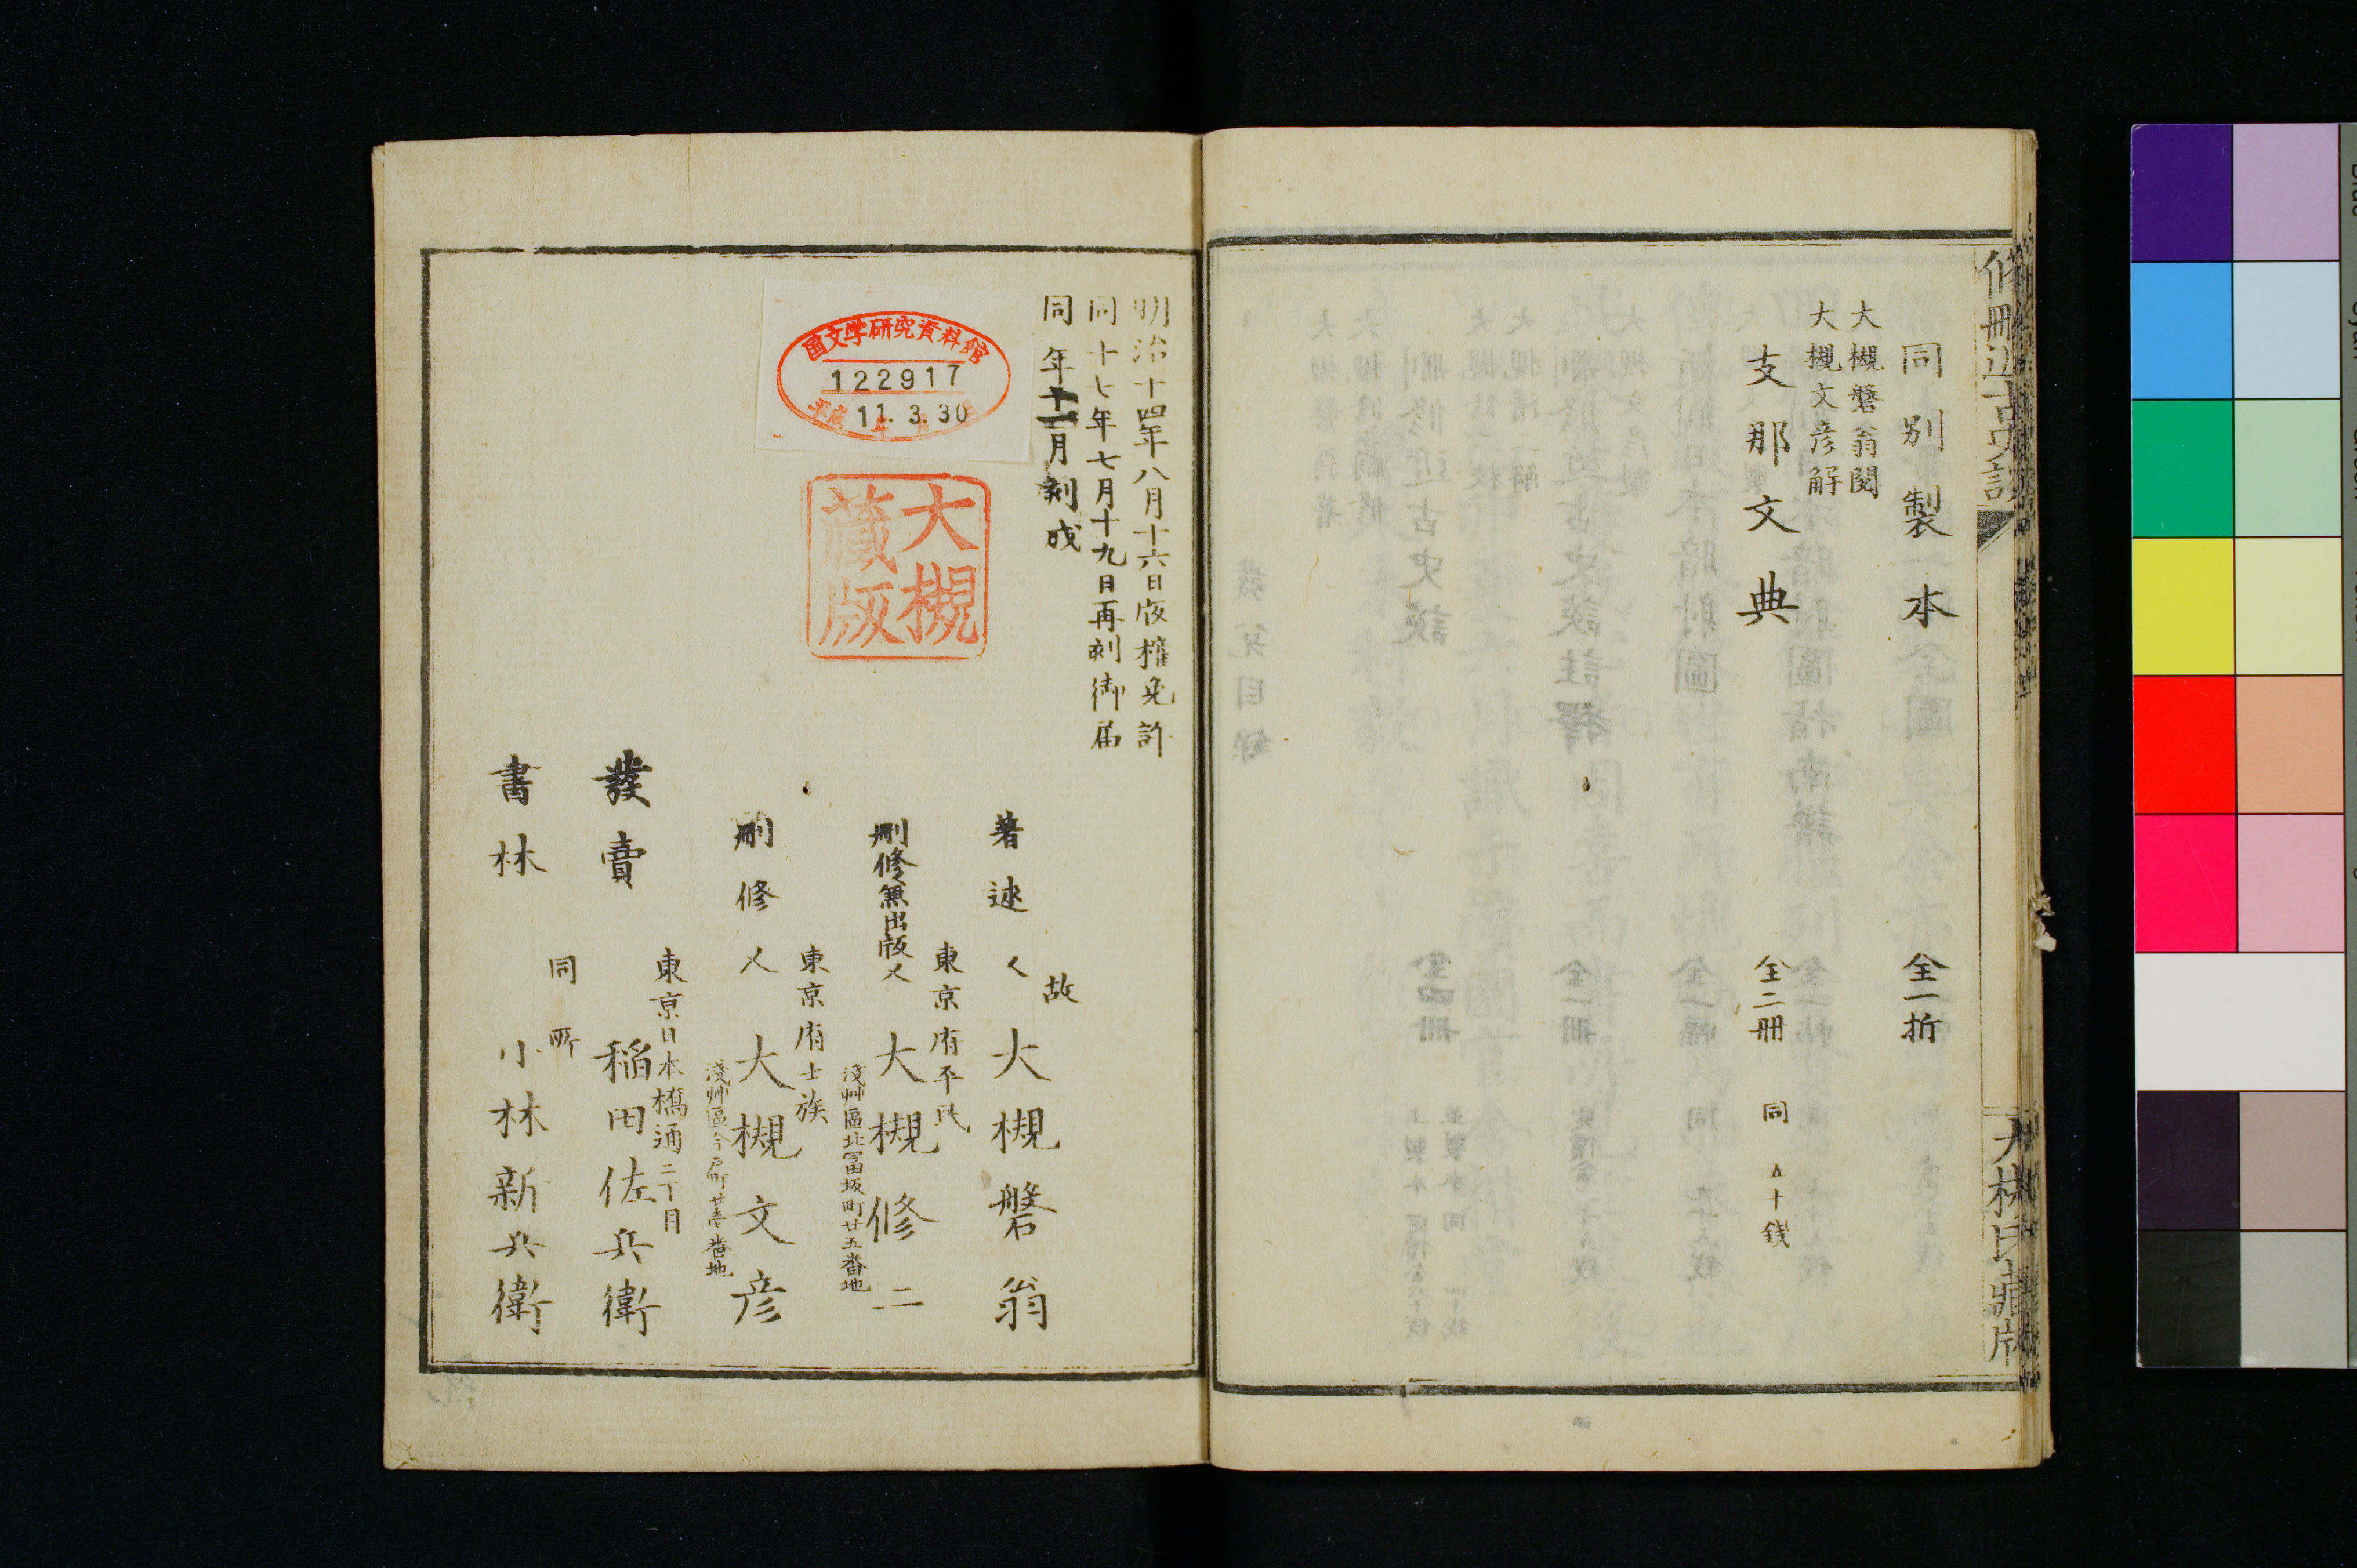 同別製本 全一折
大槻磐翁閲
大槻文彦解
支那文典 全二冊 同 五十銭
明治十四年八月十六日版権免許
同十七年七月十九日再刻御届
同年十一月刻成
国文学研究資料館
122917
平成 11.3.30
大槻
蔵版
故
著述人 大槻磐翁
東京府平民
刪修兼出版人 大槻修二
淺艸區北冨坂町廿五番地
東京府士族
刪修人 大槻文彦
淺艸區今戸町廿壱番地
東京日本橋通二丁目
發賣 稲田佐兵衛
同所
書林 小林新兵衛